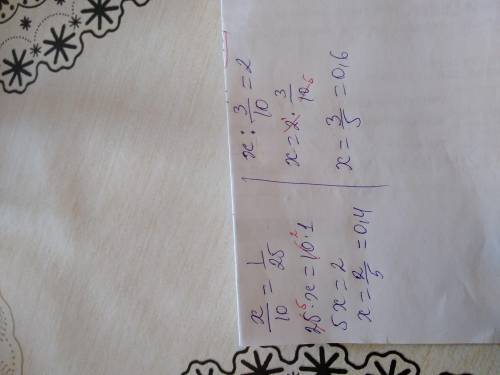 x/10 = 1/25
25⁵ · x = 10² · 1
5x = 2
x = 2/5 = 0,4
x : 3/10 = 2
x = 2¹ · 3/10₅
x = 3/5 = 0,6